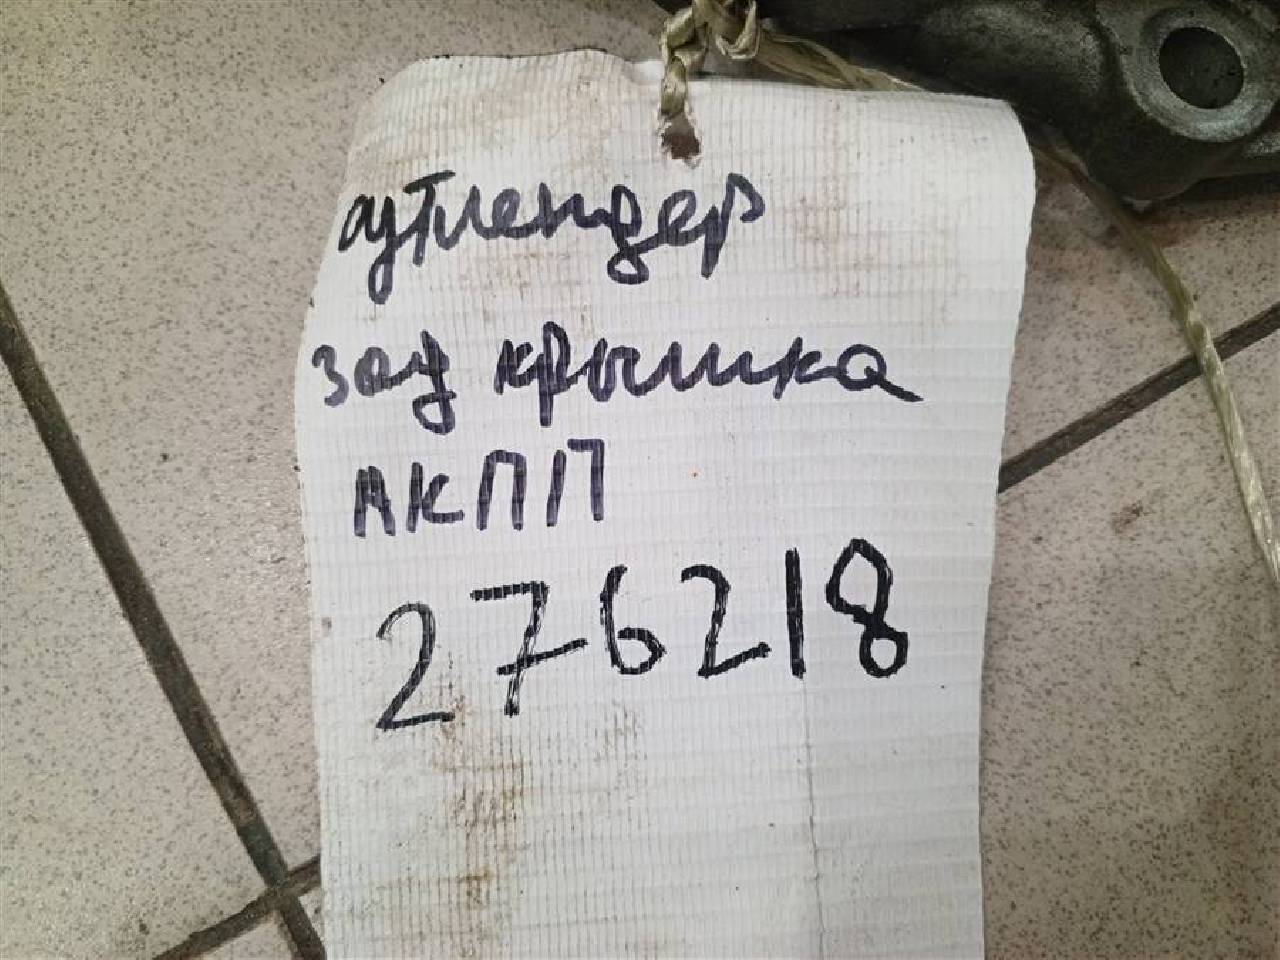 аутлендер
зад крышка
АКПП
276218